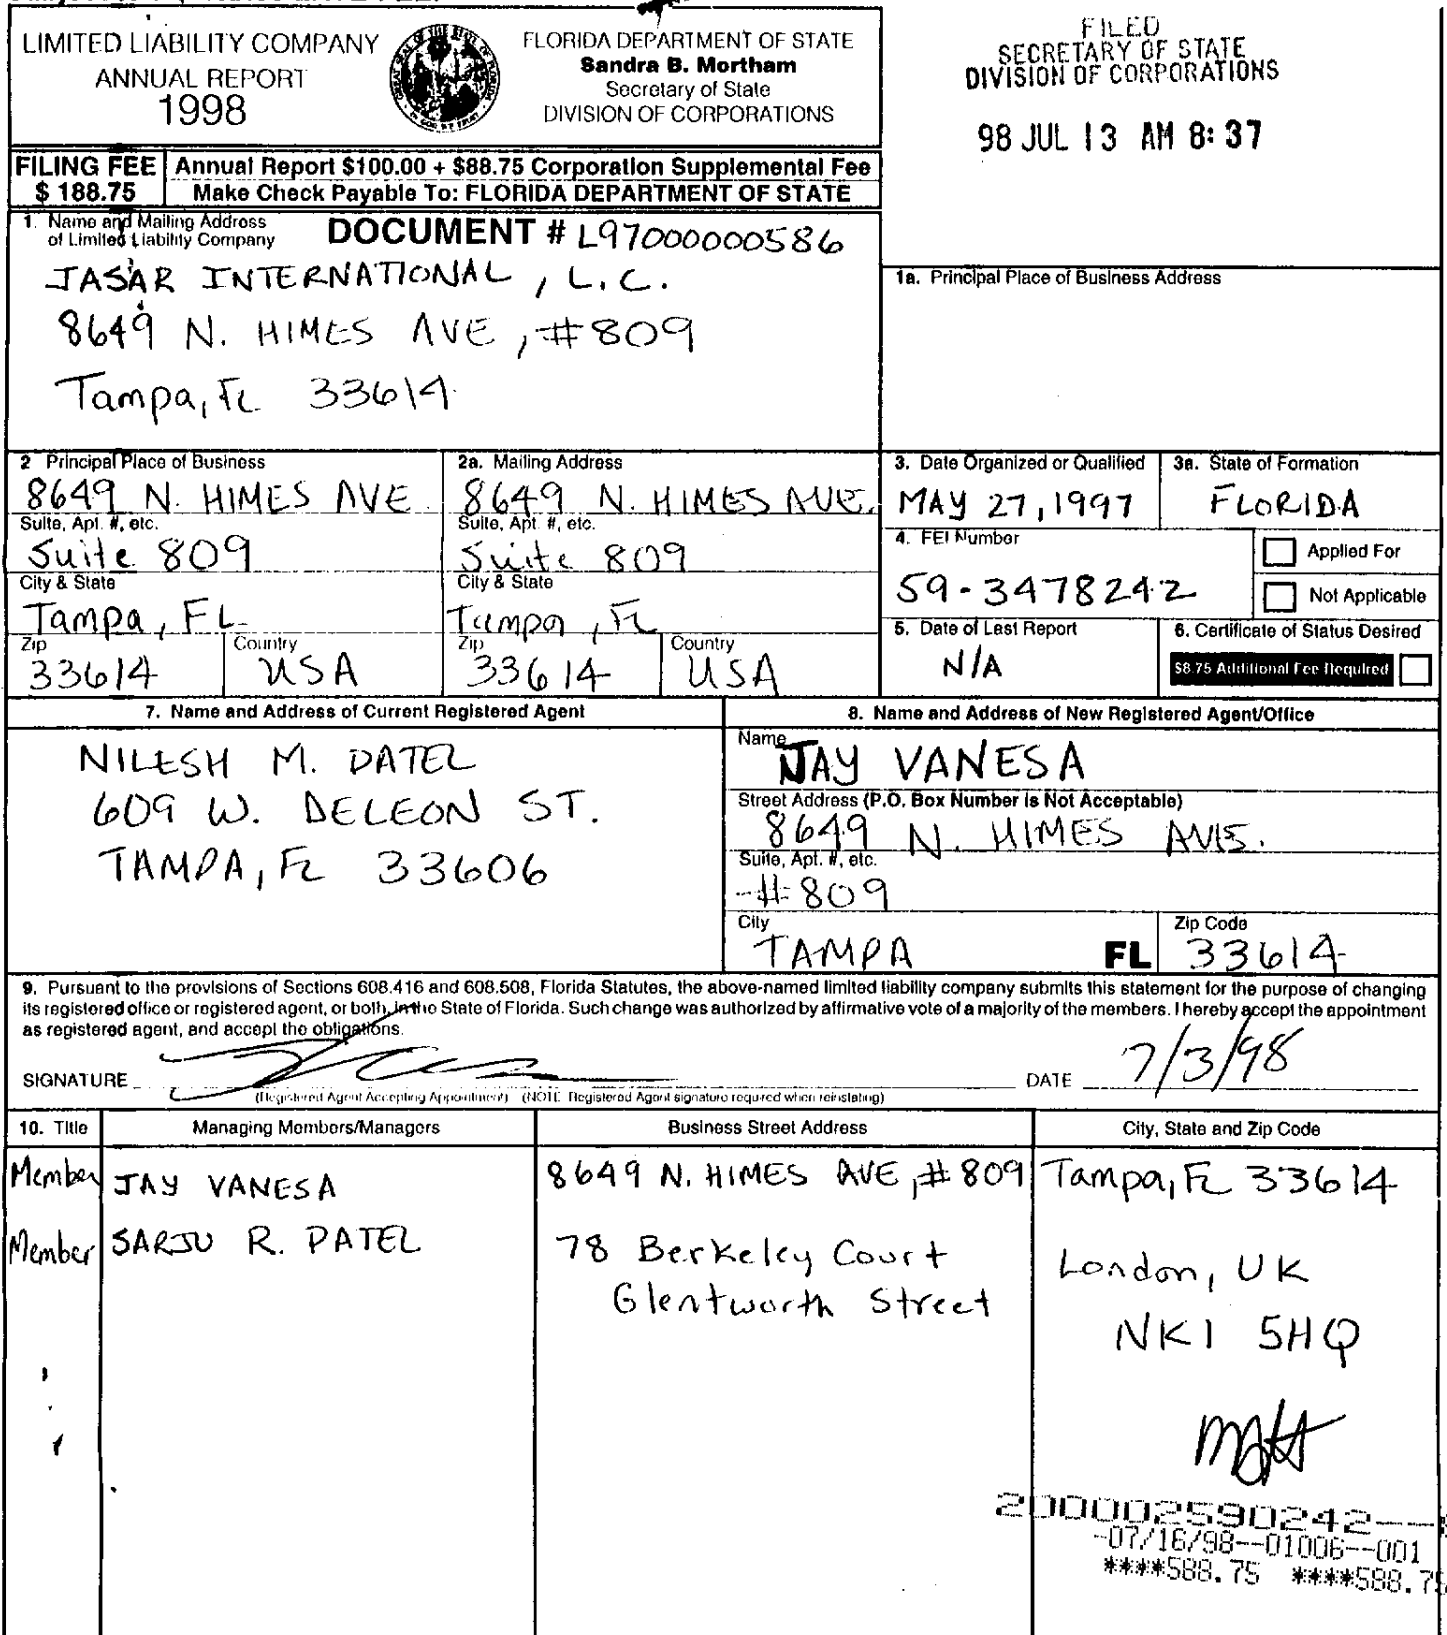 LIMITED LIABILITY COMPANY
ANNUAL REPORT
1998
FLORIDA DEPARTMENT OF STATE
Sandra B. Mortham
Secretary of State
DIVISION OF CORPORATIONS
FILED
SECRETARY OF STATE
DIVISION OF CORPORATIONS
98 JUL 13 AM 8:37
FILING FEE
$ 188.75
Annual Report $100.00 + $88.75 Corporation Supplemental Fee
Make Check Payable To: FLORIDA DEPARTMENT OF STATE
1. Name and Mailing Address
of Limited Liability Company
DOCUMENT # L97000000586
JASAR INTERNATIONAL, L.C.
8649 N. HIMES AVE, #809
Tampa, FL 33614
1a. Principal Place of Business Address
2 Principal Place of Business
8649 N. HIMES AVE
Suite, Apt. #, etc.
Suite 809
City & State
Tampa, FL
Zip
33614
Country
USA
2a. Mailing Address
8649 N. HIMES AVE.
Suite, Apt. #, etc.
Suite 809
City & State
Tampa, FL
Zip
33614
Country
USA
3. Date Organized or Qualified
MAY 27, 1997
3a. State of Formation
FLORIDA
4. FEI Number
59-3478242
Applied For
Not Applicable
5. Date of Last Report
N/A
6. Certificate of Status Desired
$8.75 Additional Fee Required
7. Name and Address of Current Registered Agent
NILESH M. PATEL
609 W. DELEON ST.
TAMPA, FL 33606
8. Name and Address of New Registered Agent/Office
Name
JAY VANESA
Street Address (P.O. Box Number is Not Acceptable)
8649 N. HIMES AVE.
Suite, Apt. #, etc.
#809
City
TAMPA FL
Zip Code
33614
9. Pursuant to the provisions of Sections 608.416 and 608.508, Florida Statutes, the above-named limited liability company submits this statement for the purpose of changing
its registered office or registered agent, or both, in the State of Florida. Such change was authorized by affirmative vote of a majority of the members. I hereby accept the appointment
as registered agent, and accept the obligations.
SIGNATURE
DATE 7/3/98
(Registered Agent Accepting Appointment) (NOTE Registered Agent signature required when reinstating)
10. Title
Managing Members/Managers
Business Street Address
City, State and Zip Code
Member JAY VANESA 8649 N. HIMES AVE, #809 Tampa, FL 33614
Member SARJU R. PATEL 78 Berkeley Court London, UK
Glentworth Street NK1 5HQ
200002590242--
-07/16/98--01006--001
****588.75 ****588.75